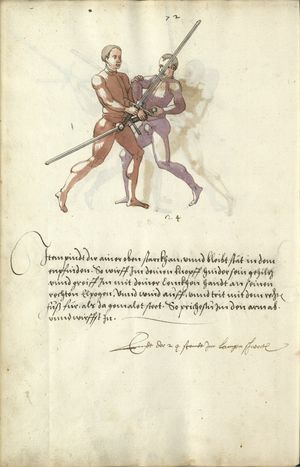 72
24
Item pindt dir ainer oben starkhan, vnnd bleibt stät in dem
empfinden. So wirff Im deinen knopff hinder sein gehiltz
vnnd greiff In mit deiner Lenckhen handt an seinen
rechten Elpogen, Vnnd wind auff, vnnd trit mit dem rechten
fueß für, als da gemalet steet. So prichestu Im den arm ab
vnnd wirffst In.
Ende der 24 stende Im Langen schwert